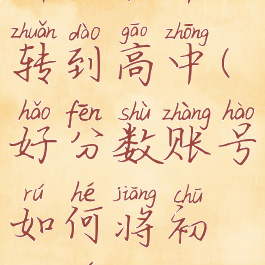 zhuǎn dào gāo zhōng
转到高中(
hǎo fēn shù zhàng hào
好分数账号
rú hé jiāng chū
如何将初